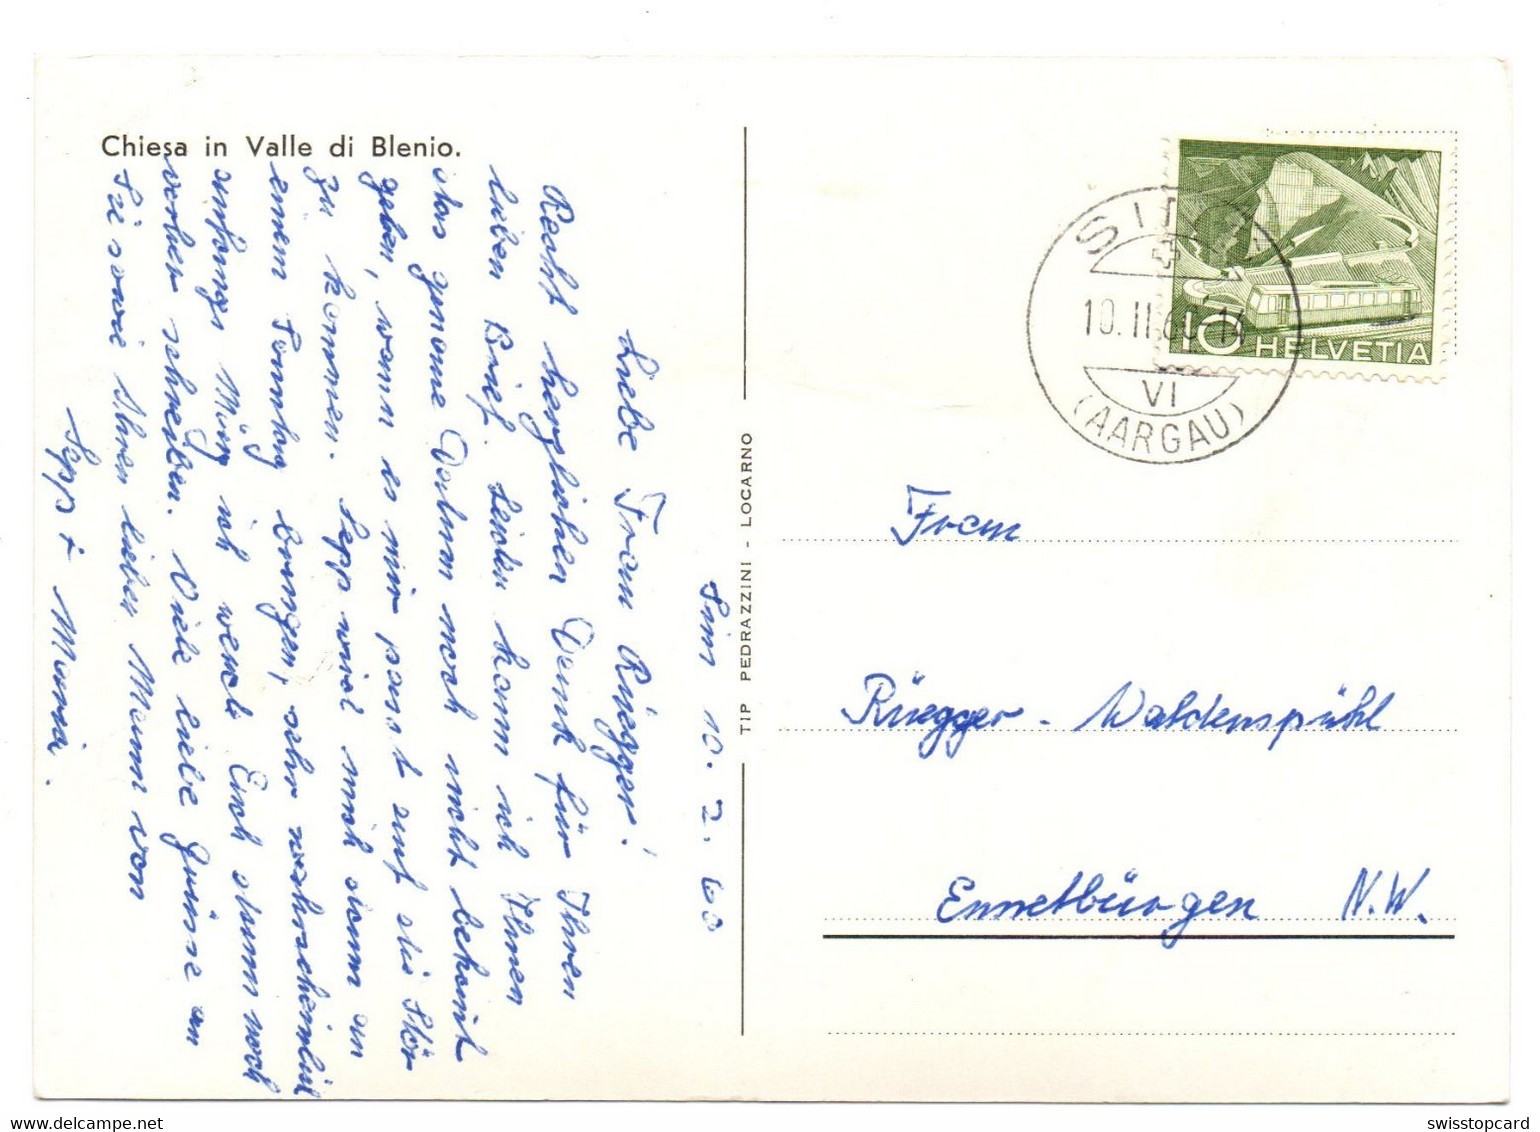 Chiesa in Valle di Blenio.
Sins 10. 2. 60
Liebe Frau Rüegger!
Recht herzlichen Dank für Ihren
lieben Brief. Leider kann ich Ihnen
das genaue Datum noch nicht bekannt
geben, wann es mir passt auf die Stör
zu kommen. Sepp wird mich dann an
einem Sonntag bringen, sehr wahrscheinlich
anfangs März ich werde Euch dann noch
vorher schreiben. Viele liebe Grüsse an
Sie sowie Ihren lieben Mann von
Sepp + Maria.
TIP PEDRAZZINI - LOCARNO
SINS
10.II.60-14
VI
(AARGAU)
10 HELVETIA
Frau
Rüegger - Waldenspühl
Ennetbürgen N.W.
swisstopcard